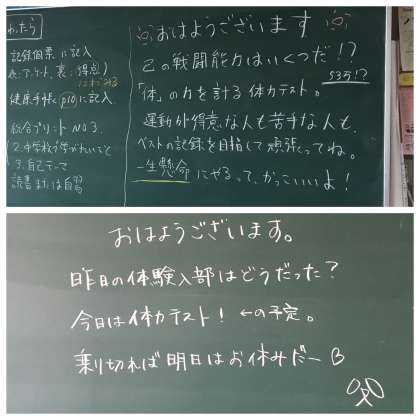 わったら
記録個票に記入
表:アンケート、裏:得点
健康手帳 p10 に記入
総合プリント NO.3
2.中学校で学びたいこと
3.自己
読書または自習
おはようございます
己の戦闘能力はいくつだ!?
53万!?
「体」の力を計る体力テスト。
運動が得意な人も苦手な人も、
ベストの記録を目指して頑張ってね。
一生懸命にやるって、かっこいいよ!
おはようございます。
昨日の体験入部はどうだった?
今日は体力テスト! ←の予定。
乗り切れば明日はお休みだー